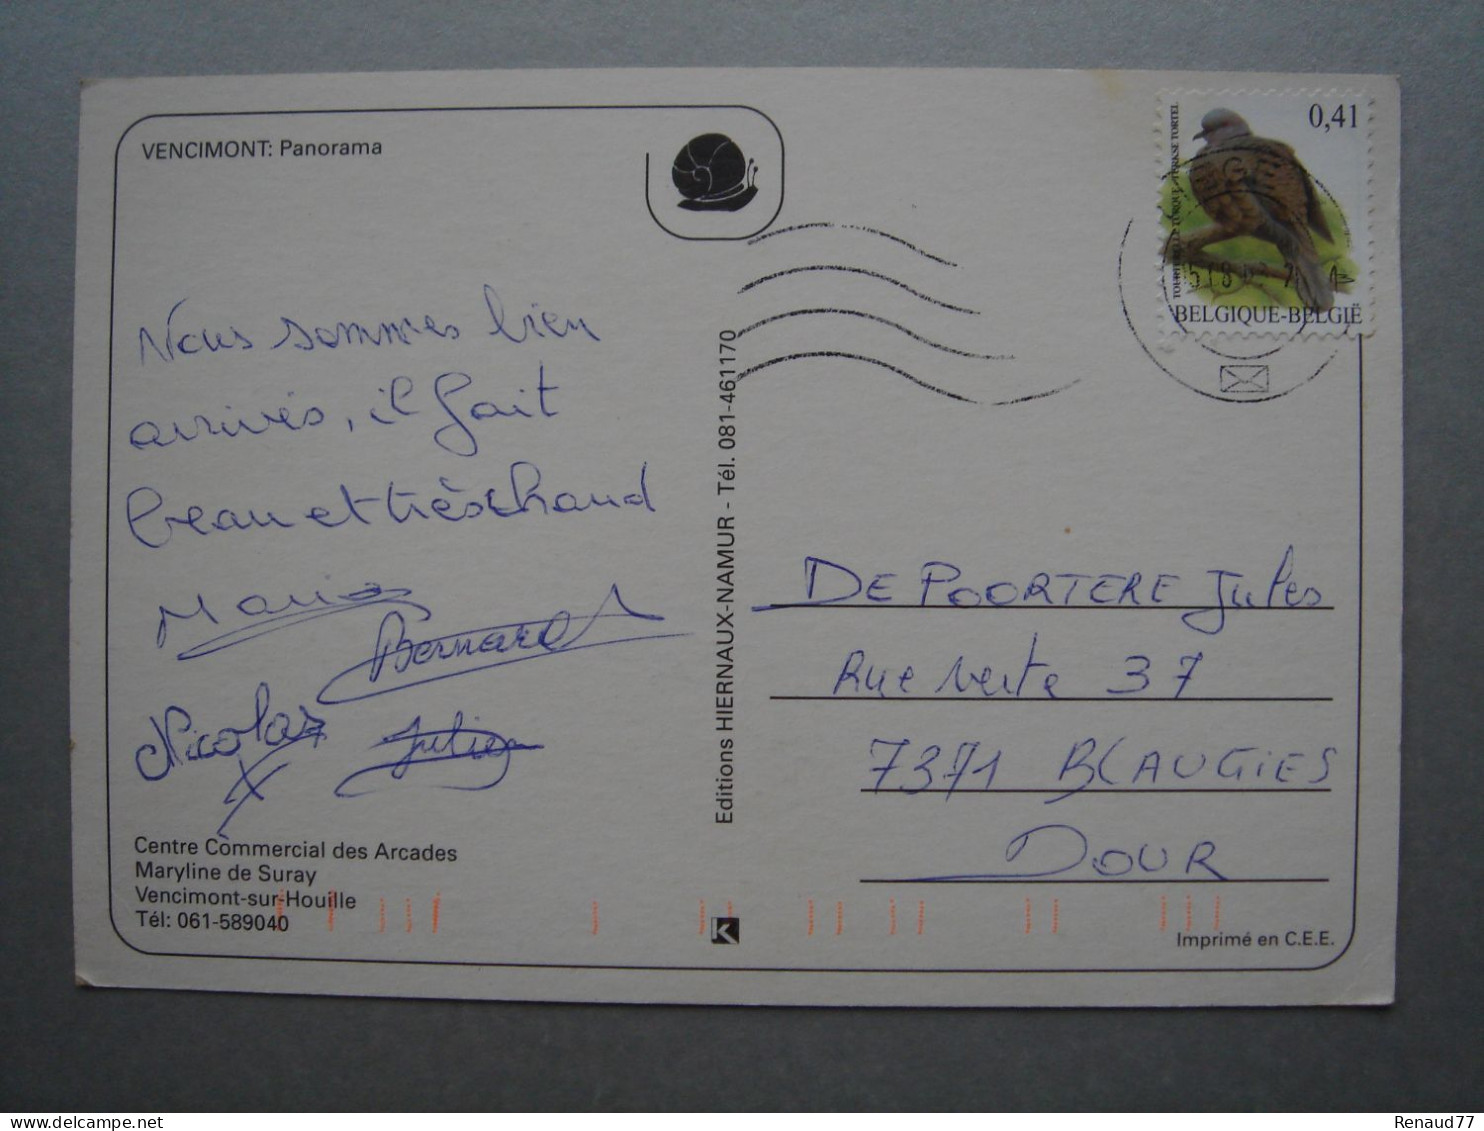 VENCIMONT: Panorama
Nous sommes bien
arrivés, il fait
beau et très chaud
Bernard
Nicolas Julien
Centre Commercial des Arcades
Maryline de Suray
Vencimont-sur-Houille
Tél: 061-589040
Editions HIERNAUX-NAMUR - Tél. 081-461170
0,41
TOURTERELLE TURQUE - TURKSE TORTEL
BELGIQUE-BELGIË
DE POORTERE Jules
Rue verte 37
7371 BLAUGIES
DOUR
Imprimé en C.E.E.
Renaud77